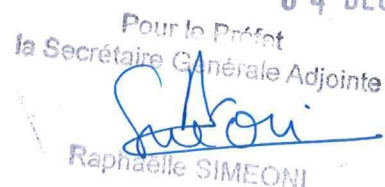 04 DEC
Pour le Préfet
la Secrétaire Générale Adjointe
Raphaëlle SIMEONI